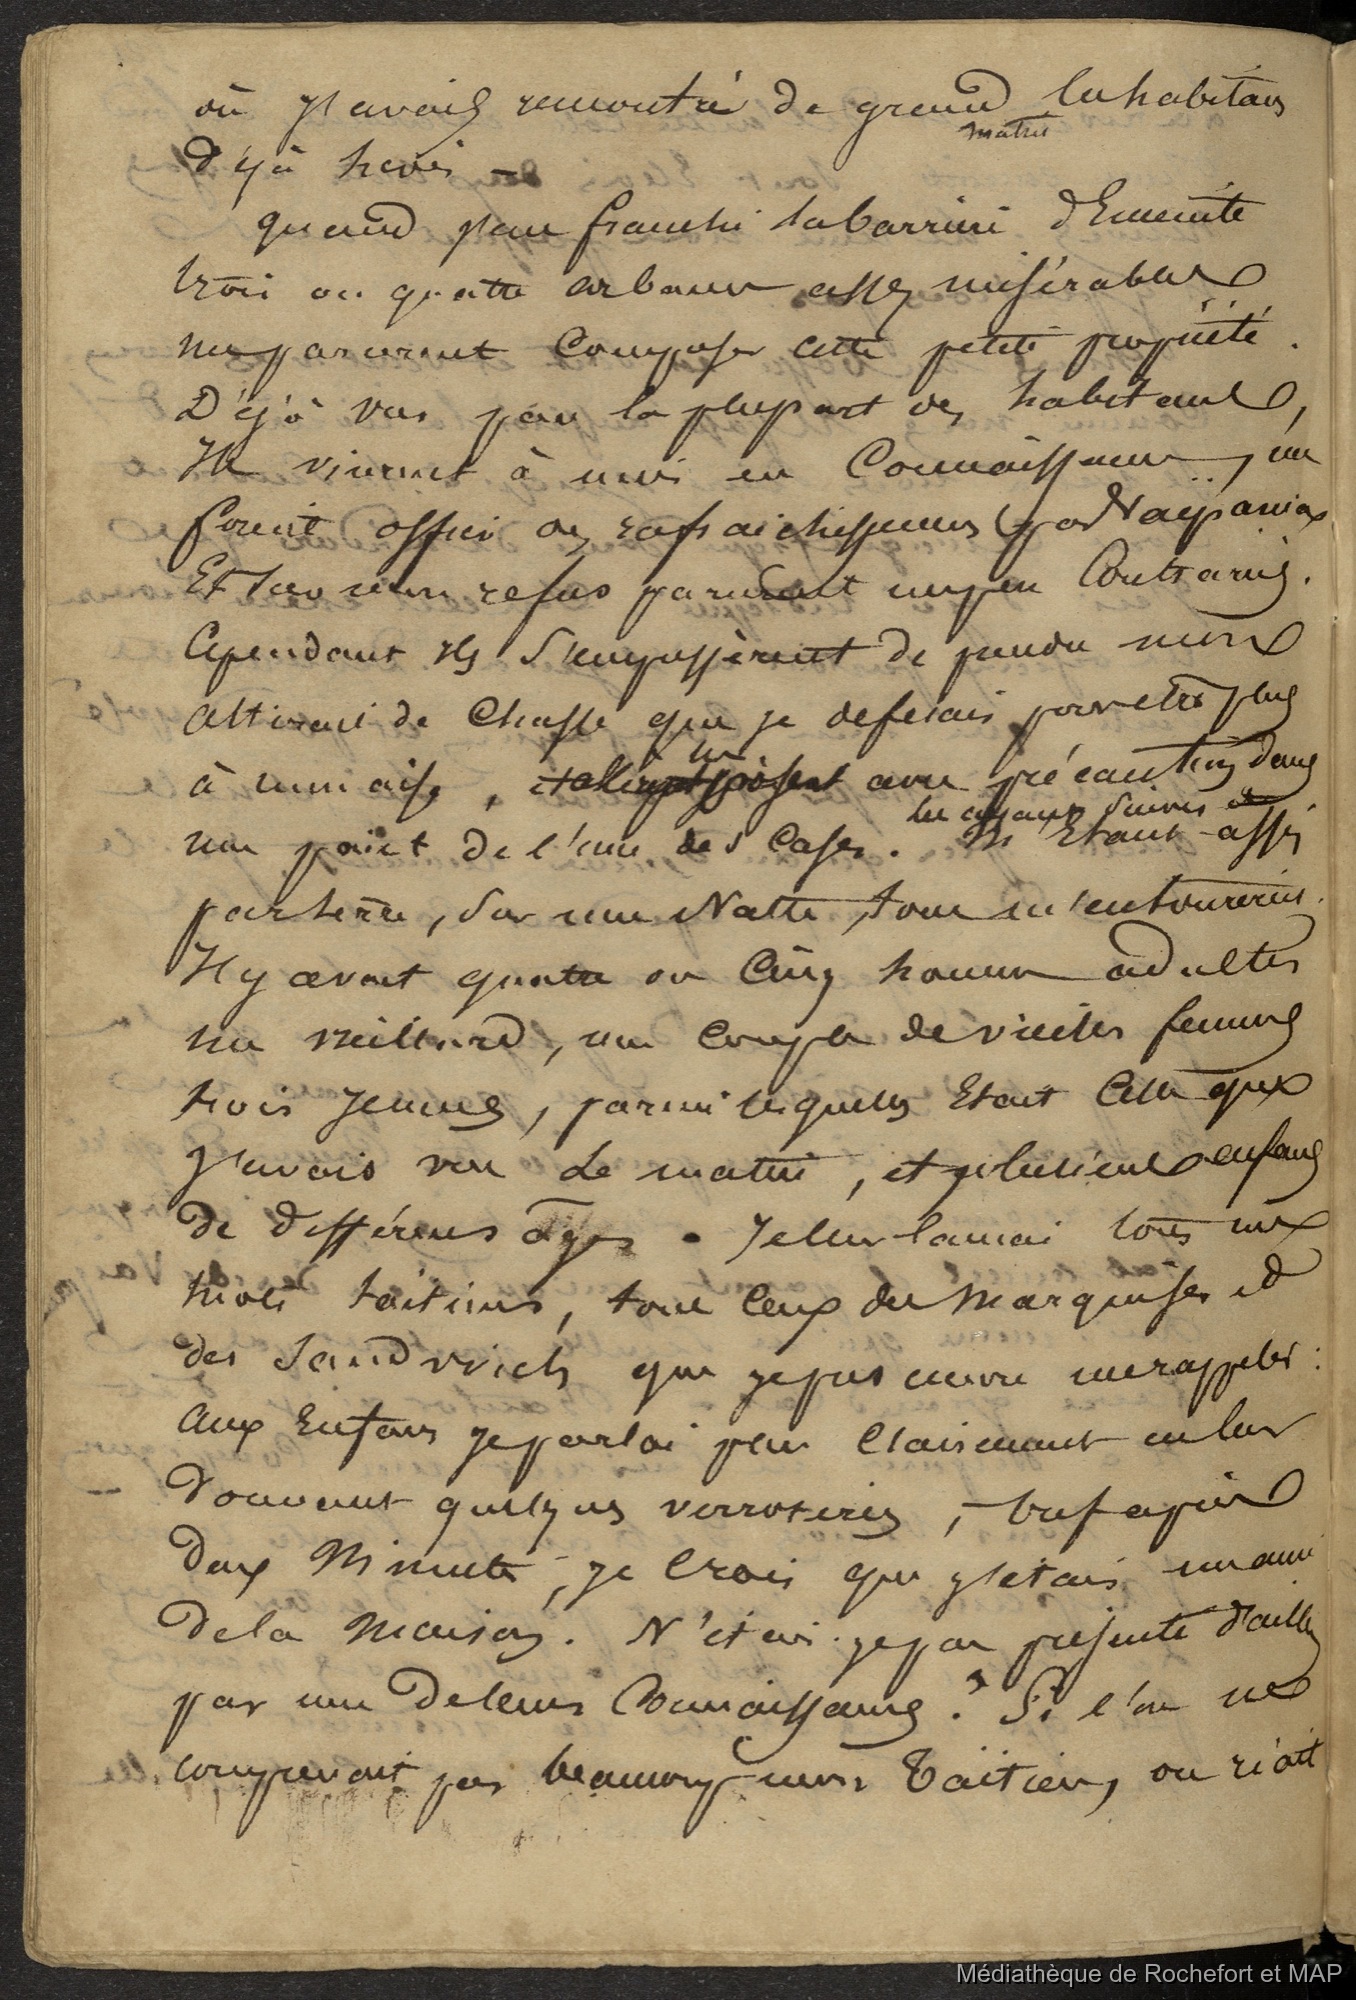 où j'avais rencontré de grand les habitans
matin
déjà
quand j'eus franchi la barrière d'Enceinte
trois ou quatre cabanes assez misérables
me parurent composer cette petite propriété.
Déjà vus par la plupart des habitans,
Ils vinrent à moi en Connaissance, me
firent offrir des rafraichissemens par
Et sur mon refus parurent un peu Contrariés.
Cependant ils s'empressèrent de prendre mon
attirail de Chasse que je défesais pour être plus
à mon aise, avec précaution dans
un
les ayant suivis et
une part de l'une des Cases. M'étant assis
par terre, sur une Natte, tous m'entourèrent.
Il y avait quatre ou Cinq hommes adultes
un vieillard, une couple de vieilles femmes
trois jeunes, parmi lesquelles Etait Celle que
j'avais vue le matin, et plusieurs enfans
de différens âges. Je leur lançai tous mes
mots taïtiens, tous ceux des Marquises et
des Sandwich que je pus encore me rappeler :
aux Enfans je parlai plus clairement en leur
donnant quelques verroteries, bref après
deux Minutes, je Crois que j'étais un ami
de la Maison. N'étais-je pas présenté d'ailleurs
par une de leurs Connaissances ? Si l'on ne
comprenait pas beaucoup mon Taïtien, on riait
Médiathèque de Rochefort et MAP